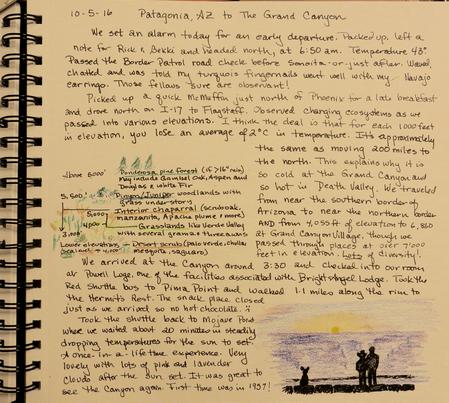 10-5-16 Patagonia, AZ to The Grand Canyon
We set an alarm today for an early departure. Packed up, left a
note for Rick & Bekki and headed north, at 6:50 am. Temperature 48°
Passed the Border Patrol road check before Sonoita or just after. Waved,
chatted and was told my turquois fingernails went well with my Navajo
earrings. Those fellows sure are observant!
Picked up a quick McMuffin just north of Phoenix for a late breakfast
and drove north on I-17 to Flagstaff. Observed changing ecosystems as we
passed into various elevations. I think the deal is that for each 1000 feet
in elevation, you lose an average of 2°C in temperature. It's approximately
the same as moving 200 miles to
the north. This explains why it is
so cold at the Grand Canyon and
so hot in Death Valley. We traveled
from near the southern border of
Arizona to near the northern border
AND from 4,055 ft of elevation to 6,860
at Grand Canyon Village, though we
passed through places at over 7,000
feet in elevation. Lots of diversity!
Above 6000' Ponderosa pine forest
May include Gambel Oak, Aspen and
Douglas & white Fir
5,500' Pinyon/Juniper woodlands with
grass understory
5,000 Interior chaparral (scrub oak,
manzanita, Apache plume & more)
Grasslands like Verde Valley
with several grasses there
Lower elevations Desert scrub (palo verde, cholla,
mesquite, saguaro)
We arrived at the Canyon around 3:30 and checked into our room
at Powell Lodge, one of the facilities associated with Bright Angel Lodge. Took the
Red Shuttle bus to Pima Point and walked 1.1 miles along the rim to
the Hermits Rest. The snack place closed
just as we arrived so no hot chocolate.
Took the shuttle back to Mojave Point
where we waited about 20 minutes in steadily
dropping temperatures for the sun to set.
A once-in-a-life time experience. Very
lovely with lots of pink and lavender
clouds after the sun set. It was great to
see the Canyon again. First time was in 1957!